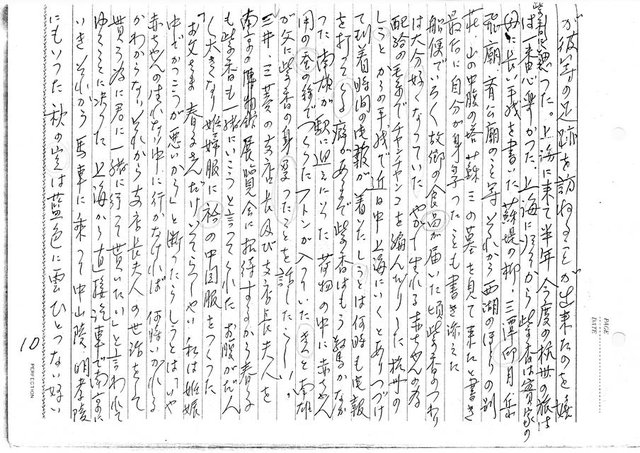 が彼等の足跡を訪ねることが出来たのを嬉
紫香は思った。上海に来て半年 今度の杭州の旅は
は一番心楽しかった 上海に帰ってから紫香は実家の
母に長い手紙を書いた 蘇堤の柳 三潭印月 岳
飛廟 育公廟のこと等 それから西湖のほとりの別
荘 山の中腹の塔 蘇小小の墓を見て来たと書き
最后に自分が身重ったことも書き添えた
船便でいろいろ故郷の食品が届いた頃 紫香のつわり
は大分好くなっていた やがて生れる赤ちゃんの為
配給の毛糸でチャンチャンコを編んだりした 杭州の
しうとからの手紙で近日中 上海にいくとあり つづけ
て到着時間の電報が着いた しうとは何時も電報
を打ってくる癖があるので紫香はもう驚かなか
った 南雄が駅に迎えにいった 荷物の中に赤ちゃん
用の 本の綿でつくったフトンが入っていた きっと南雄
が父に紫香の身重ったことを話したらしい
三井 三菱の支店長及び支店長夫人を
南京の博物館 展覧会に招待するから 春子
も紫香も一緒にいこうと言ってくれた お腹がだん
だん大きくなり 妊婦服に袷の中国服をつくった
「お父さま 春子さんだけいらっしゃい 私は妊娠
中でかっこうが悪いから」と断った しうとは「いや
赤ちゃんの生れない中に行かなければ 何時いかれる
かわからない それから支店長夫人の世話をして
貰う為に君に一緒に行って貰いたい」と言われて
ゆくことに決った 上海から直接汽車で南京に
いき それから馬車に乗って中山陵 明孝陵
にもいった 秋の空は藍色に雲ひとつない好い
10
PERFECTION
PAGE
DATE